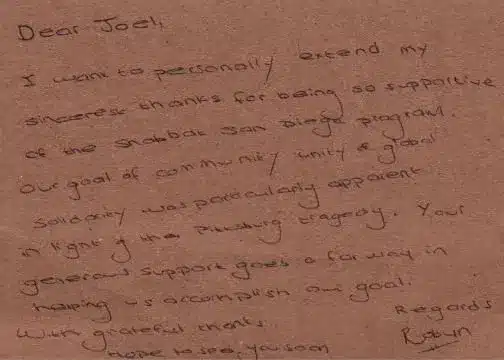 Dear Joel,
I want to personally extend my
sincerest thanks for being so supportive
of the Shabbat San Diego program.
Our goal of community unity & global
solidarity was particularly apparent
in light of the Pittsburg tragedy. Your
generous support goes a far way in
helping us accomplish our goal.
With grateful thanks.
Regards
Hope to see you soon
Robyn